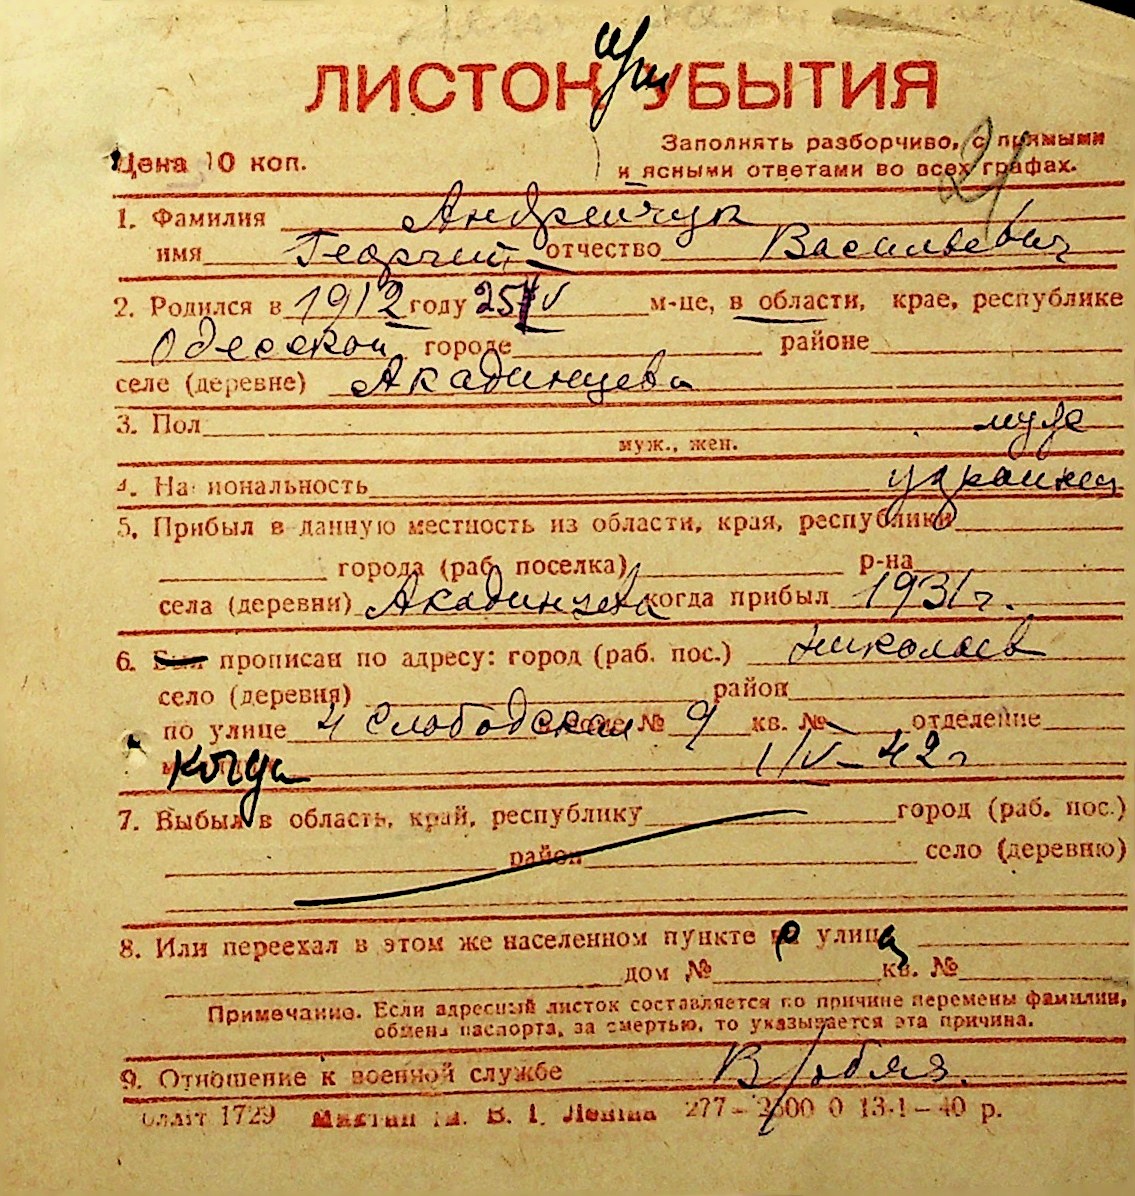 ЛИСТОК при УБЫТИЯ
Цена 10 коп.
Заполнять разборчиво, с прямыми
и ясными ответами во всех графах.
21
1. Фамилия Андрейчук
имя Георгий отчество Васильевич
2. Родился в 1912 году 25/V м-це, в области, крае, республике
Одесской городе районе
селе (деревне)
3. Пол муж
муж., жен.
4. Национальность украинец
5. Прибыл в данную местность из области, края, республики
города (раб. поселка) р-на
села (деревни) когда прибыл 1931 г.
6. Был прописан по адресу: город (раб. пос.) Николаев
село (деревня) район
по улице 4 Слободская доме № 9 кв. № отделение
когда 1/V-42 г
7. Выбыл в область, край, республику город (раб. пос.)
район село (деревню)
8. Или переехал в этом же населенном пункте улица
дом № кв. №
Примечание. Если адресный листок составляется по причине перемены фамилии,
обмена паспорта, за смертью, то указывается эта причина.
9. Отношение к военной службе В/обяз.
1729 В. І. Леніна 277-2500 0 13-1-40 р.